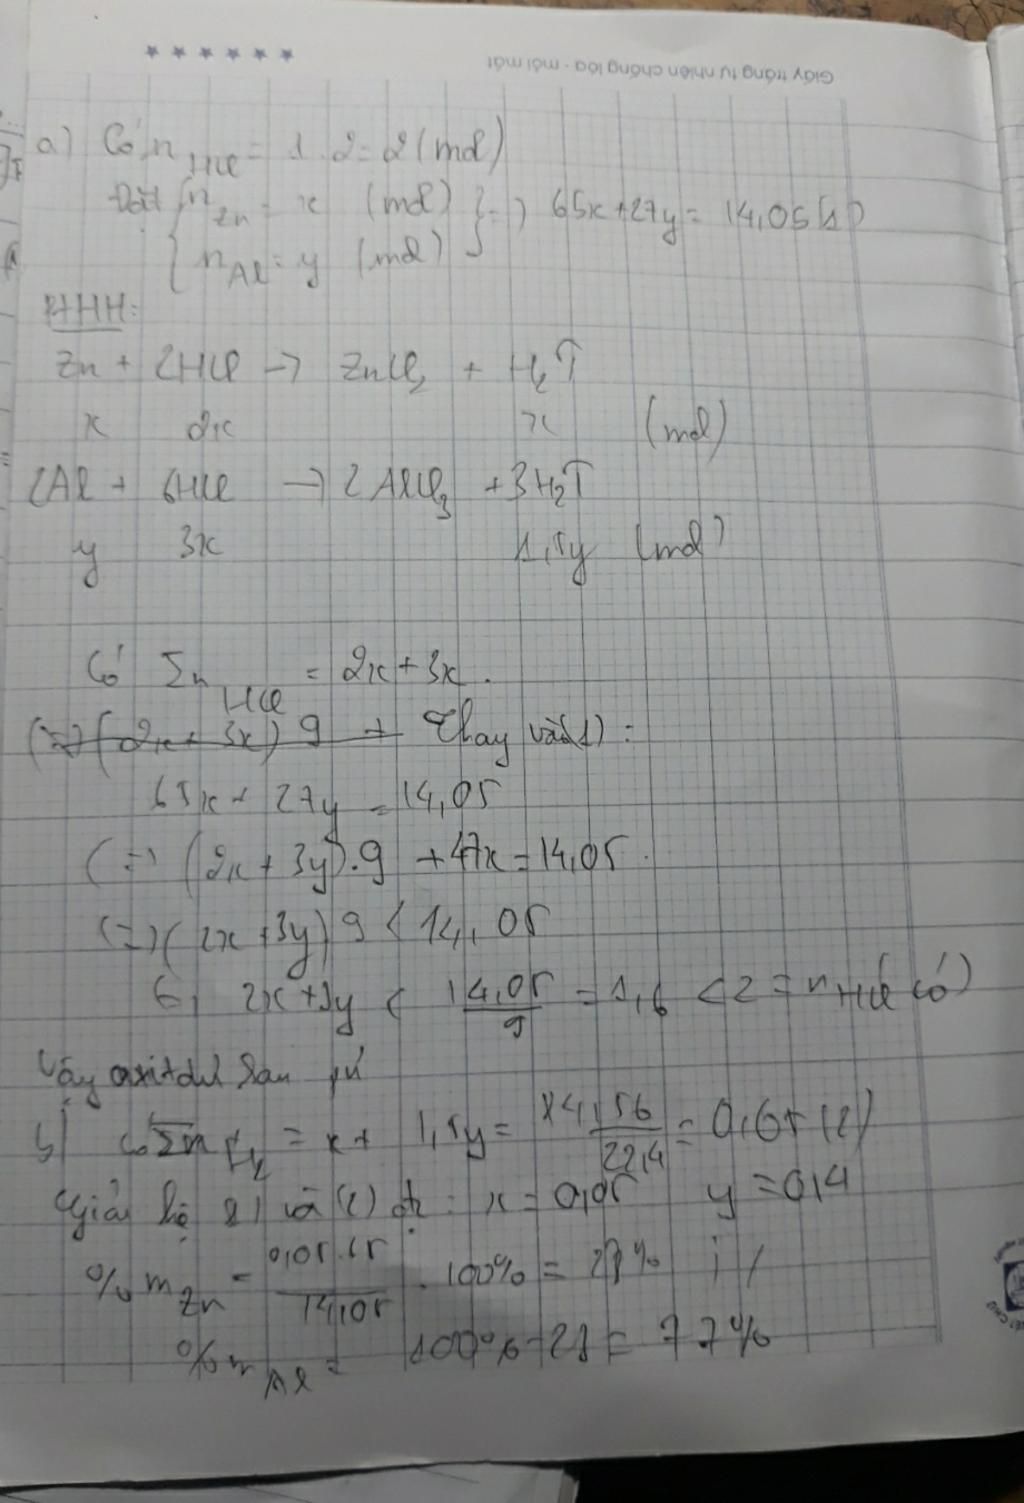 Giấy trắng tự nhiên chống lóa - mỏi mắt
a) Có n HCl = 1.2 = 2 (mol)
Đặt { n Zn = x (mol) } => 65x + 27y = 14,05 (1)
{ n Al = y (mol) }
PTHH:
Zn + 2HCl -> ZnCl2 + H2↑
x 2x x (mol)
2Al + 6HCl -> 2AlCl3 + 3H2↑
y 3x 1,5y (mol)
Có Σn HCl = 2x + 3x.
(=) (2x + 3x) 9 + Thay vào (1) :
65x + 27y = 14,05
(=) (2x + 3y).9 + 47x = 14,05.
(=) (2x + 3y) 9 < 14,05
2x + 3y < 14,05/9 = 1,6 < 2 = n HCl (có)
Vậy axit dư sau pứ
b) Có Σn H2 = x + 1,5y = 14,56/22,4 = 0,65 (2)
Giải hệ (1) và (2) đk : x = 0,05 y = 0,4
% m Zn = 0,05.65/14,05 . 100% = 23% ;
% m Al = 100% - 23 = 77%